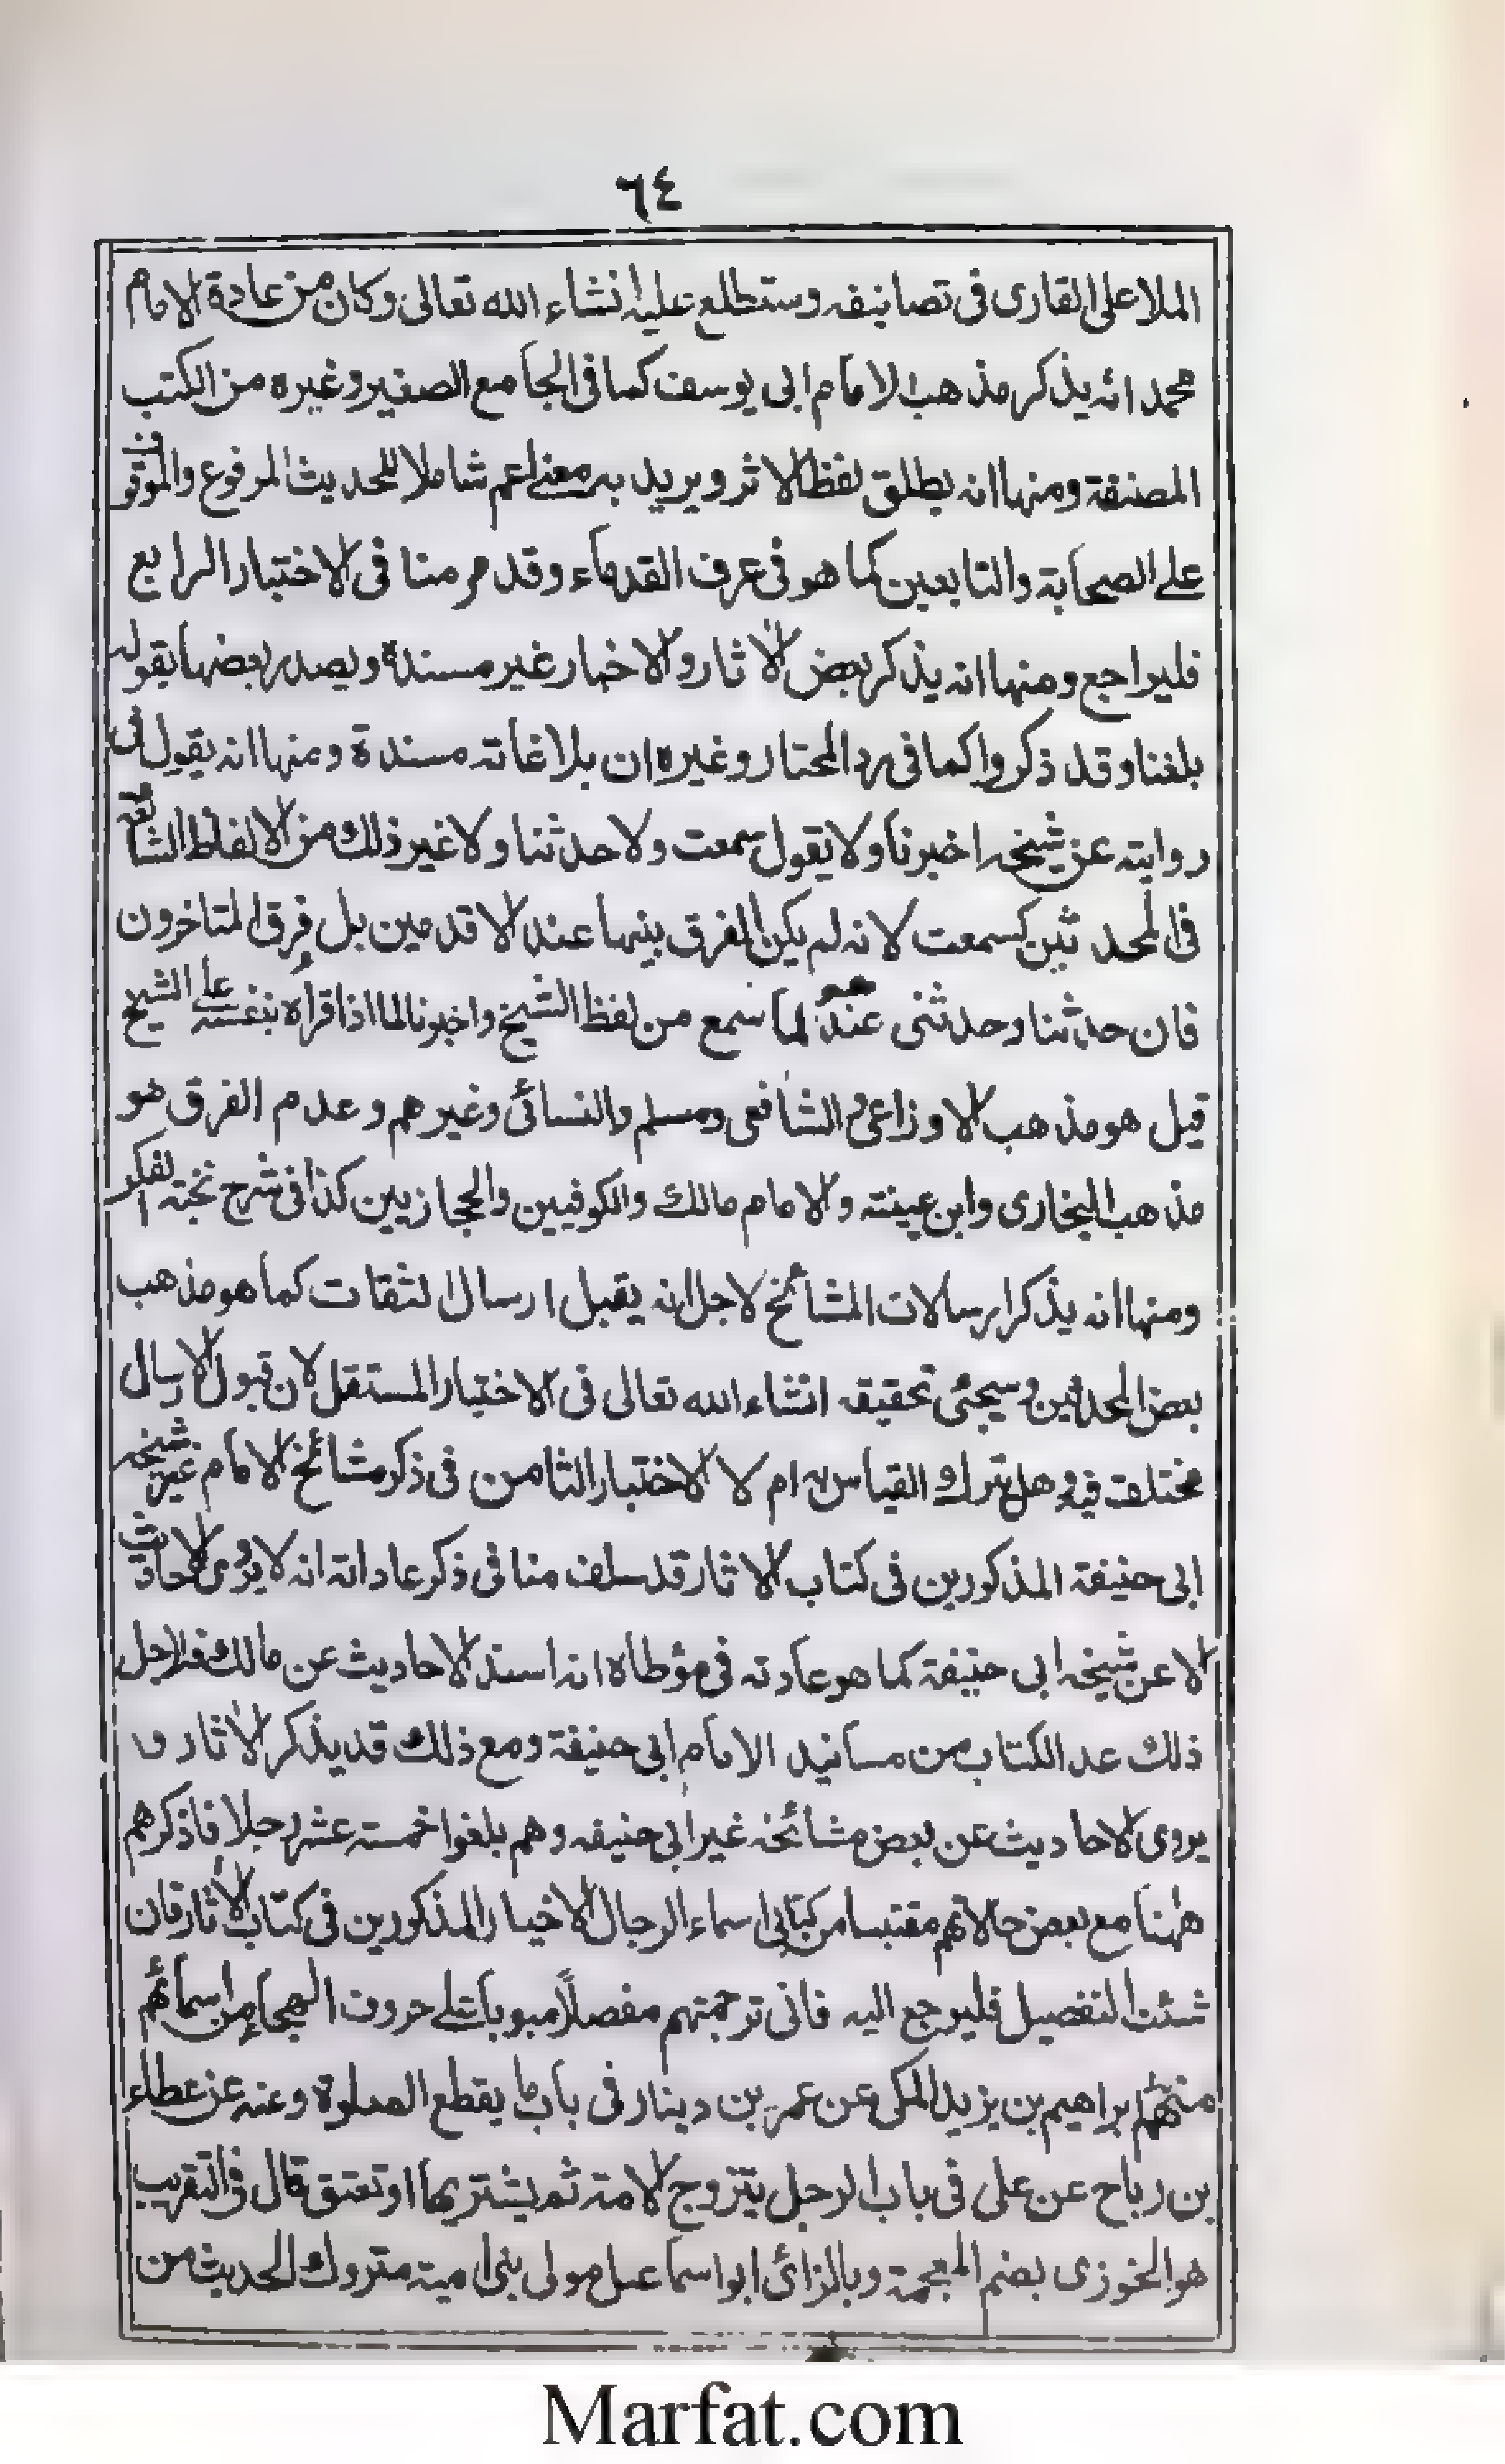 ٦٤
الملا علی القاری فی تصانیفه وستطلع علیه انشاء الله تعالی وکان من عادة الامام
محمد انه یذکر مذهب الامام ابی یوسف کما فی الجامع الصغیر وغیره من الکتب
المصنفة ومنها انه یطلق لفظ الاثر ویرید به معنے اعم شاملا للحدیث المرفوع والموقوف
علے الصحابة والتابعین کما هو فی عرف القدماء وقد مر منا فی الاختبار الرابع
فلیراجع ومنها انه یذکر بعض الاٰثار والاخبار غیر مسندة ویصدر بعضها بقوله
بلغنا وقد ذکروا کما فی رد المحتار وغیره ان بلاغاته مسندة ومنها انه یقول فی
روایته عن شیخه اخبرنا ولا یقول سمعت ولا حدثنا ولا غیر ذلك من الالفاظ الشائعة
فی المحدثین کسمعت لانه لم یکن الفرق بینها عند الاقدمین بل فرق المتاخرون
فان حدثنا وحدثنی عندهم لما سمع من لفظ الشیخ واخبرنا لما اذا قرأه بنفسه علے الشیخ
قیل هو مذهب الاوزاعی والشافعی ومسلم والنسائی وغیرهم وعدم الفرق هو
مذهب البخاری وابن عیینته والامام مالك والکوفیین والحجازیین کذا فی شرح نخبة الفکر
ومنها انه یذکر ارسالات المشائخ لاجل انه یقبل ارسال الثقات کما هو مذهب
بعض المحدثین وسیجئی تحقیقه انشاء الله تعالی فی الاختیار المستقل لان قبول الارسال
مختلف فیه وهل تترك القیاس به ام لا الاختبار الثامن فی ذکر مشائخ الامام غیر شیخه
ابی حنیفة المذکورین فی کتاب الاثار قد سلف منا فی ذکر عاداته انه لا یروی الاحادیث
الا عن شیخه ابی حنیفة کما هو عادته فی مؤطاه انه اسند الاحادیث عن مالك فلاجل
ذلك عد الکتاب من مسانید الامام ابی حنیفة ومع ذلك قد یذکر الاٰثار و
یروی الاحادیث عن بعض مشائخه غیر ابی حنیفه وهم بلغوا خمسته عشر رجلا فاذکرهم
ههنا مع بعض حالاتهم مقتبسا من کتابی اسماء الرجال الاخیار المذکورین فی کتاب الاٰثار فان
شئت التفصیل فلیرجع الیه فانی ترجمتهم مفصلاً مبوبا علے حروف الهجاء من اسمائهم
منهم ابراهیم بن یزید المکی عن عمر بن دینار فی باب ما یقطع الصلوة وعنه عن عطاء
بن رباح عن علی فی باب الرجل یتزوج الامة ثم یشتریها او تعتق قال فی التقریب
هو الخوزی بضم المعجمة وبالزائ ابو اسماعیل مولی بنی امیة متروك الحدیث من
Marfat.com